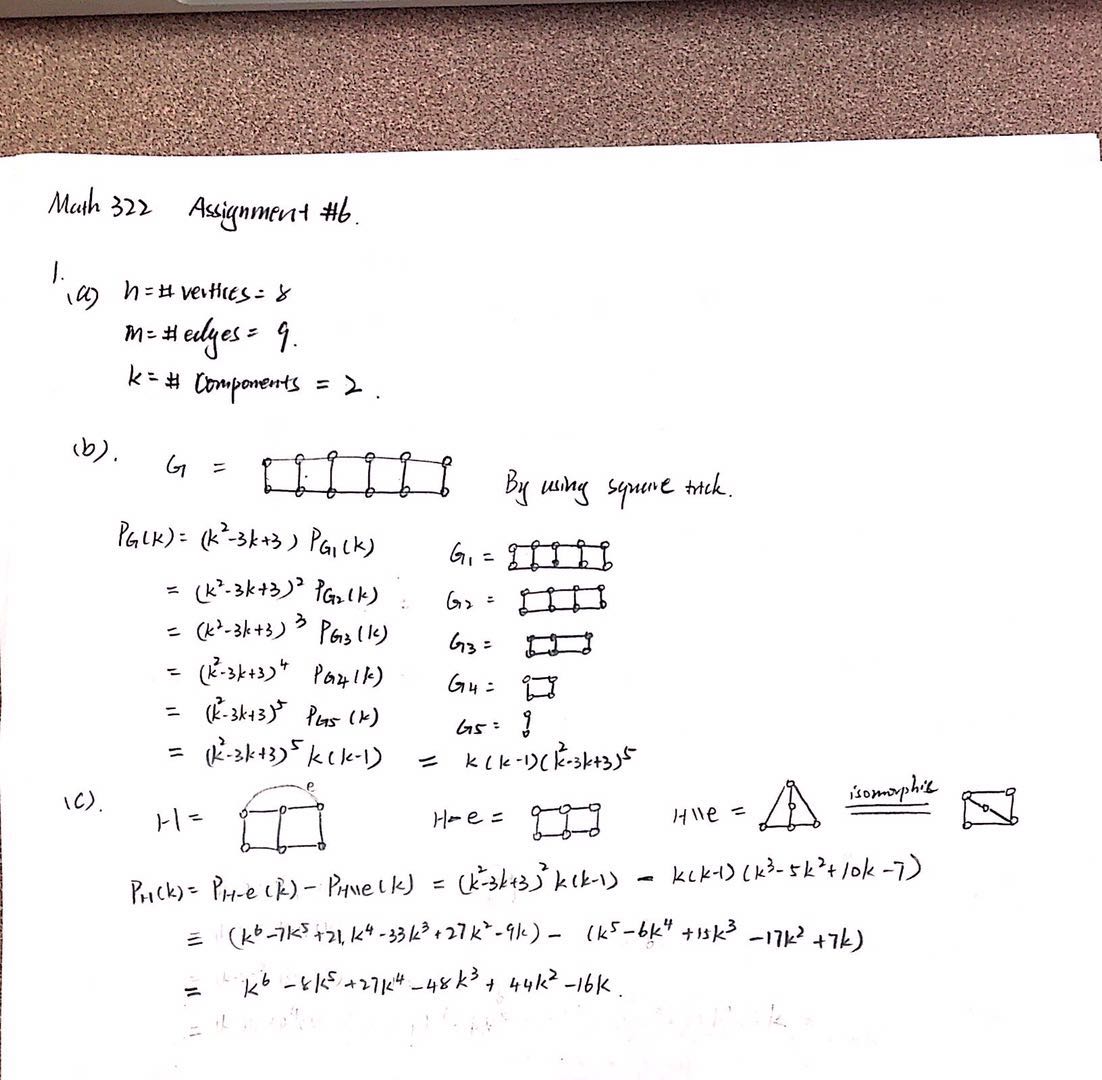 Math 322 Assignment #6.
1.
(a) n = # vertices = 8
m = # edges = 9.
k = # components = 2.
(b). G =
By using square trick.
P_G(k) = (k²-3k+3) P_G₁(k) G₁ =
= (k²-3k+3)² P_G₂(k) G₂ =
= (k²-3k+3)³ P_G₃(k) G₃ =
= (k²-3k+3)⁴ P_G₄(k) G₄ =
= (k²-3k+3)⁵ P_G₅(k) G₅ =
= (k²-3k+3)⁵ k(k-1) = k(k-1)(k²-3k+3)⁵
(c). H = e H-e = H\\e = isomorphic
P_H(k) = P_H-e(k) - P_H\\e(k) = (k²-3k+3)² k(k-1) - k(k-1)(k³-5k²+10k-7)
= (k⁶-7k⁵+21k⁴-33k³+27k²-9k) - (k⁵-6k⁴+15k³-17k²+7k)
= k⁶-8k⁵+27k⁴-48k³+44k²-16k.